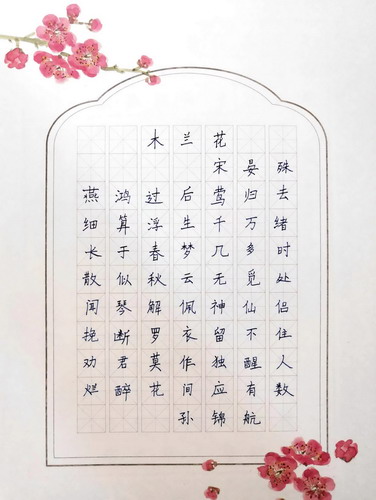 木兰花
宋晏殊
燕鸿过后莺归去
细算浮生千万绪
长于春梦几多时
散似秋云无觅处
闻琴解佩神仙侣
挽断罗衣留不住
劝君莫作独醒人
烂醉花间应有数
孙锦航